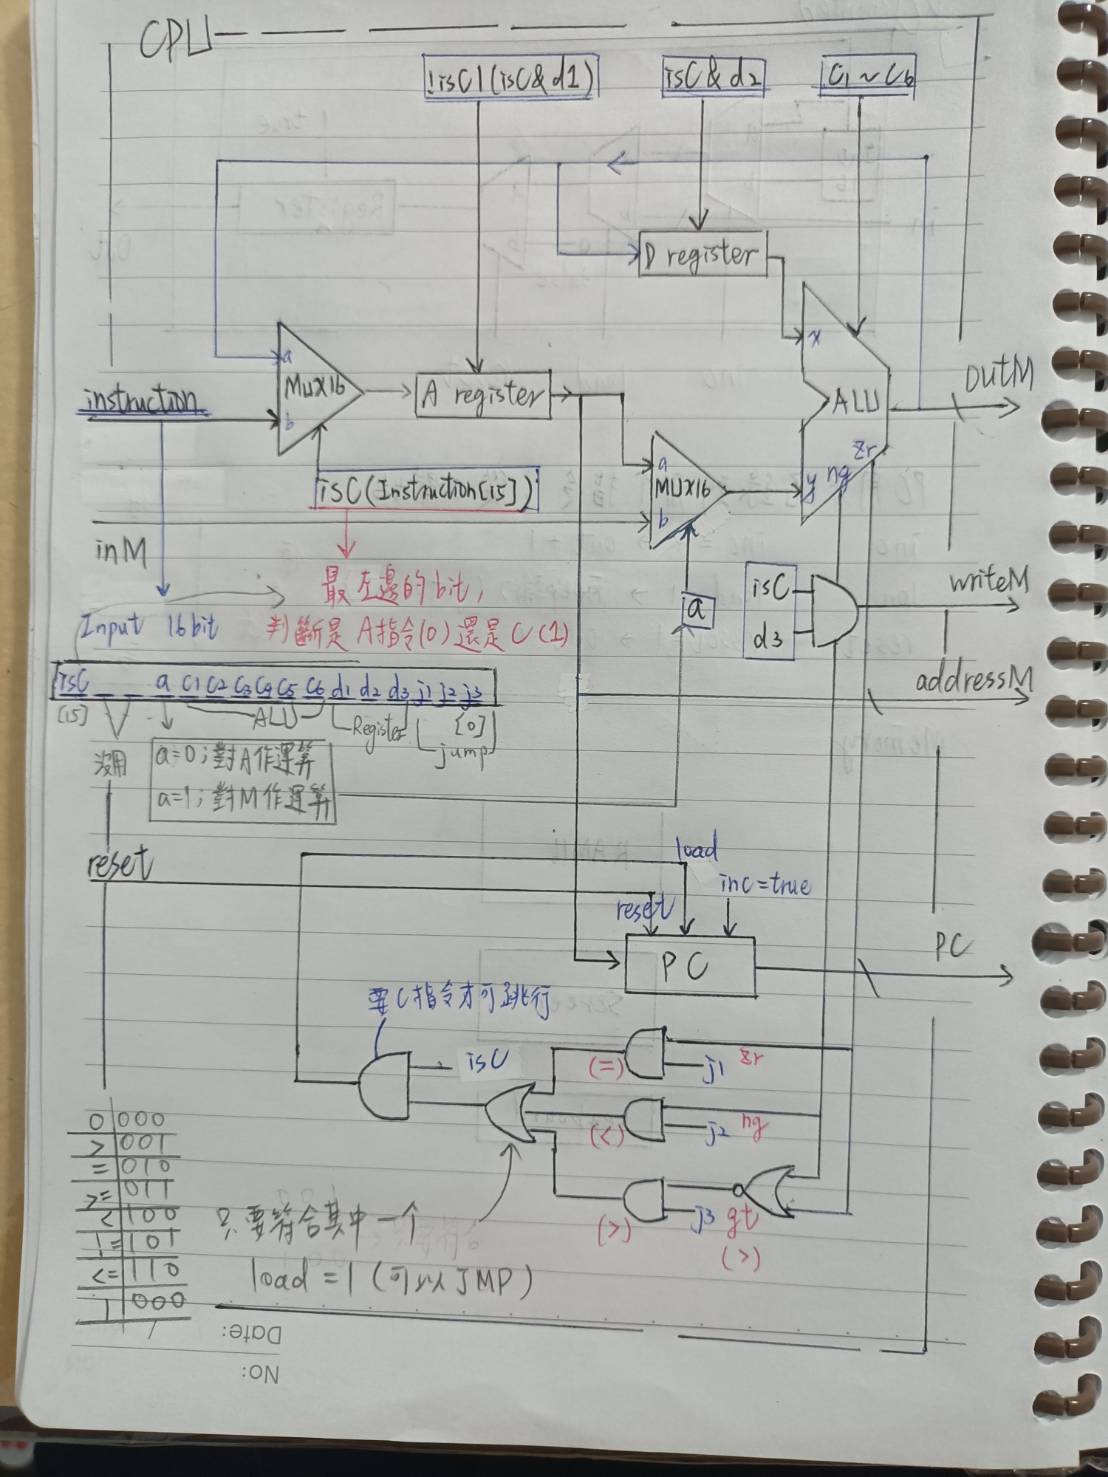 CPU
!isC|(isC&d1)
isC&d2
C1~C6
D register
a
MUX16
b
instruction
A register
x
ALU
zr
ng
y
outM
isC(Instruction[15])
a
MUX16
b
inM
最左邊的bit,
判斷是A指令(0)還是C(1)
Input 16bit
a
isC
d3
writeM
addressM
isC _ _ a C1 C2 C3 C4 C5 C6 d1 d2 d3 j1 j2 j3
[15]
ALU
Register
[0]
jump
沒用
a=0;對A作運算
a=1;對M作運算
reset
load
reset
inc=true
PC
PC
要C指令才可跳行
isC
(=)
j1
zr
(<)
j2
ng
(>)
j3
gt
(>)
0 000
> 001
= 010
>= 011
< 100
!= 101
<= 110
1 000
只要符合其中一個
load = 1 (可以JMP)
Date:
No: